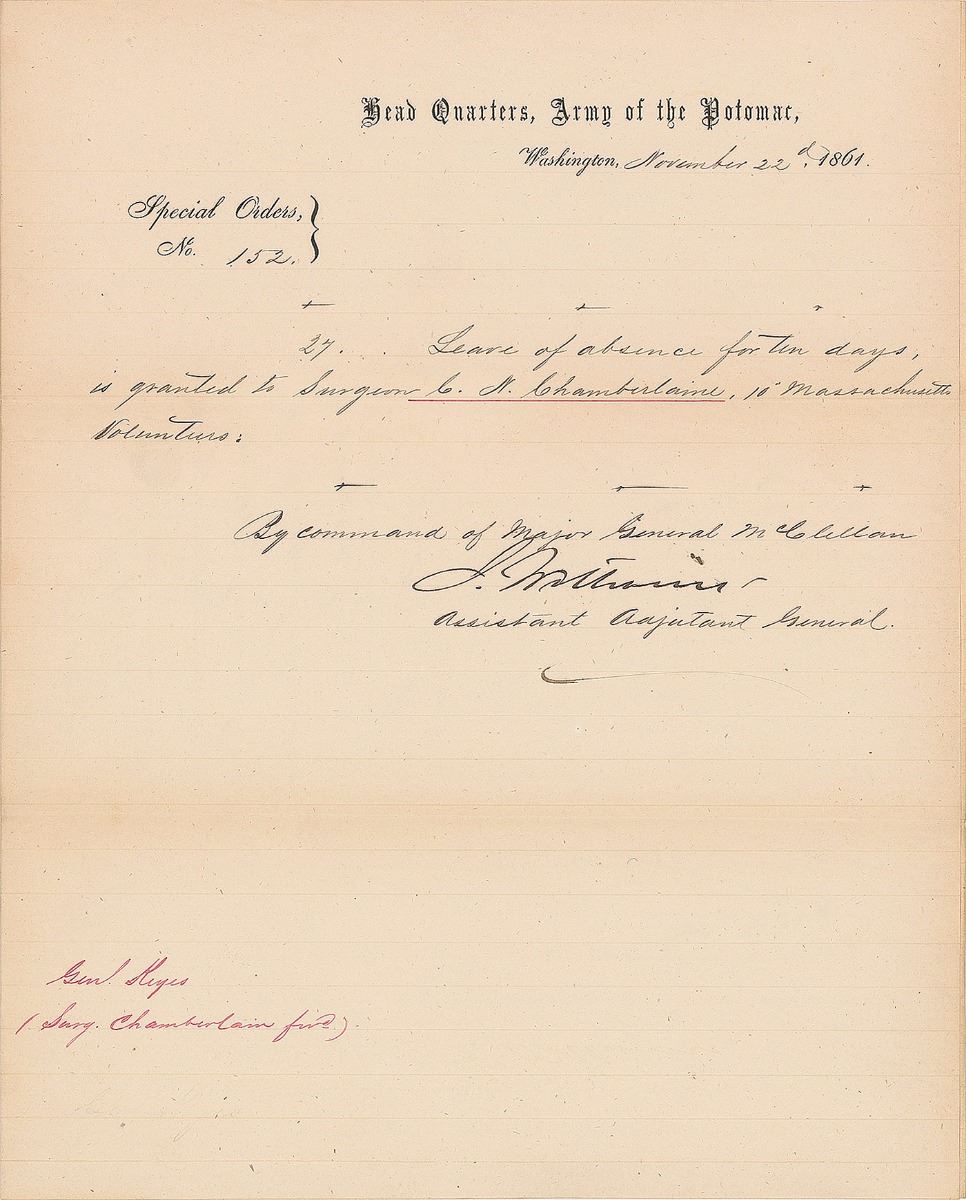 Head Quarters, Army of the Potomac,
Washington, November 22d, 1861.
Special Orders,
No. 152.
27. . Leave of absence for ten days,
is granted to Surgeon C. N. Chamberlaine, 10" Massachusetts
Volunteers:
By command of Major General McClellan
S. Williams
Assistant Adjutant General.
Genl. Keyes
(Surg. Chamberlain fwd.)